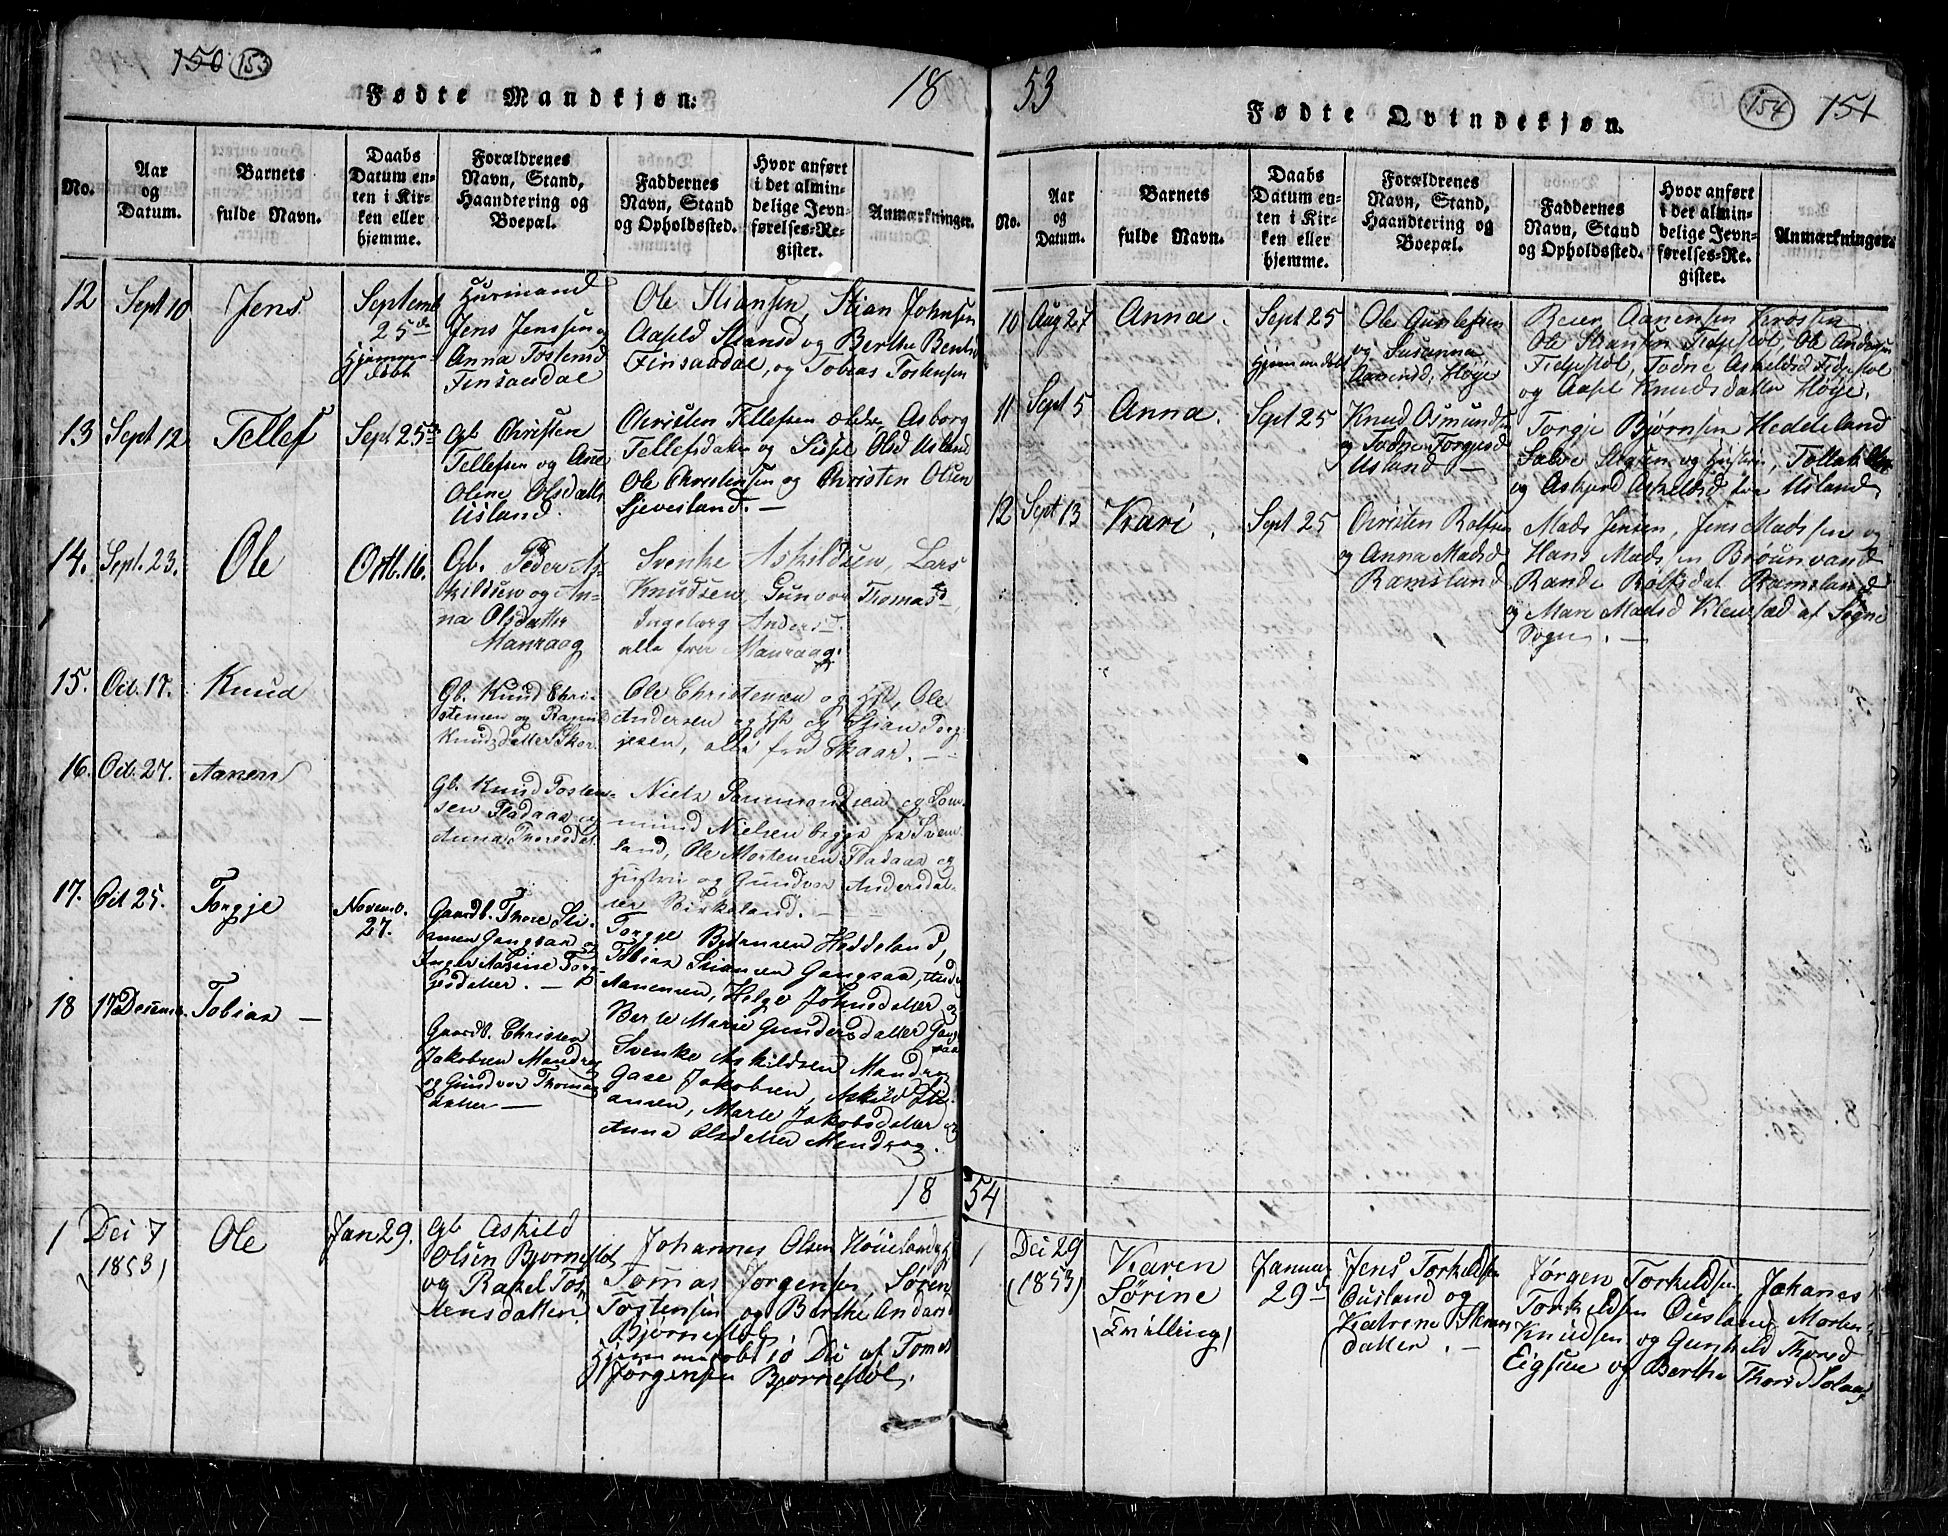 150 153
Fødte Mandkjøn.
18
No.
Aar og Datum.
Barnets fulde Navn.
Daabs Datum enten i Kirken eller hjemme.
Forældrenes Navn, Stand, Haandtering og Boepæl.
Faddernes Navn, Stand og Opholdssted.
Hvor anført i det almindelige Jevnførelses-Register.
Anmærkninger.
12 Sept 10 Jens
Septemb 25de
Hjemmedøbt
Huusmand
Jens Jenssen og
Anna Tostensd
Finsaadal
Ole Stiansen, Stian Johnsen
Aasold Stiansd og Berthe Bentsd
Finsaadal, og Tobias Tostensen
13 Sept 12 Tellef
Sept 25de
Gb Christen
Tellefsen og Ane
Oline Olsdatter
Usland.
Christen Tellefsen ældre, Asborg
Tellefsdatter og Sissel Olsd Usland
Ole Christensen og Christen Olsen
Ljevesland. —
14. Sept. 23. Ole
Octb. 16.
Gb. Peder As-
kildsen og An-
na Olsdatter
Manraag
Svenke Askildsen, Lars
Knudsen, Gunvor Thomasd
Ingeborg Andersd.
alle fra Manraag.
15. Oct. 17. Knud
Gb. Knud Chri-
stensen og
Knudsdatter Skar.
Ole Christensen og Hst, Ole
Andersen og Hst og Stian Torg-
jesen, alle fra Skaar. —
16. Oct. 27. Aanen
Gb. Knud Tosten-
sen Fladaas og
Anna Thorsdat.
Niels Sammondsen og Som-
mund Nielsen begge fra Svein-
land, Ole Mortensen Fladaas og
Hustru og Gundvor Andersdat-
ter Birkeland. —
17. Oct 25. Torgje
Novemb. 27.
Gaardb. Thore Sti-
ansen Gangsaa og
Inger Assine Torg-
jesdatter. —
Torgje Bjørnsen Heddeland,
Tobias Stiansen Gangsaa,
Aanensen, Helge Johnsdatter og
Berte Marie Gundersdatter Gang-
saa
18 17 Desemb. Tobias —
Gaardb. Christen
Jakobsen Mandrag
og Gundvor Thomas-
datter —
Svenke Askildsen Mandrag
Gase Jakobsen, Askild Sti-
ansen, Marte Jakobsdatter og
Anna Olsdatter Mandrag.
18
1 Dec 7 1853) Ole
Jan 29.
Gb Askild
Olsen Bjørnestøl
og Rakel Tos-
tensdatter.
Johannes Olsen Høiseland
Tomas Jorgensen, Søren
Tostensen og Berthe Andarsd
Bjørnestøl
Hjemmedøbt 10 Dec af Tomas
Jorgensen Bjørnestøl.
53
Fødte Qvindekjøn.
154 151
No.
Aar og Datum.
Barnets fulde Navn.
Daabs Datum enten i Kirken eller hjemme.
Forældrenes Navn, Stand, Haandtering og Boepæl.
Faddernes Navn, Stand og Opholdssted.
Hvor anført i det almindelige Jevnførelses-Register.
Anmærkninger.
10 Aug 27 Anna.
Sept 25
Hjemmedøbt
Ole Gunlefsen
og Susanna
Aanensd, Høge
Reier Aanensen
Ole Stiansen Fidjestøl, Ole Andersen
Fidjestøl, Todne Askeldsd Fidjestøl
og Aasel Knudsdatter Høge.
11 Sept 5 Anna.
Sept 25
Knud Osmundsen
og Todne Torgjesd
Usland —
Torgje Bjørnsen Heddeland
Salve Stensen og Hustru, Tollak
og Askjerd Askeldsd fra Usland
12 Sept 13 Kari.
Sept 25
Christen Rolfsen
og Anna Madsd
Ramsland
Mads Jensen, Jens Madssen og
Hans Madsen Brounvand
Rande Rolfsdat Ramsland
og Mari Madsd Kleivstad af Søgne
Sogn. —
54
1 Dec 29 (1853) Karen
Sørine
(Tvilling)
Januar 29de
Jens Torkeldsen
Ousland og
Katrine
datter. —
Jørgen Torkeldsen, Johanes
Torkeldsen Ousland, Morten
Knudsen og Gunhild Thorsd
Eigsae og Berthe Thorsd Solaas